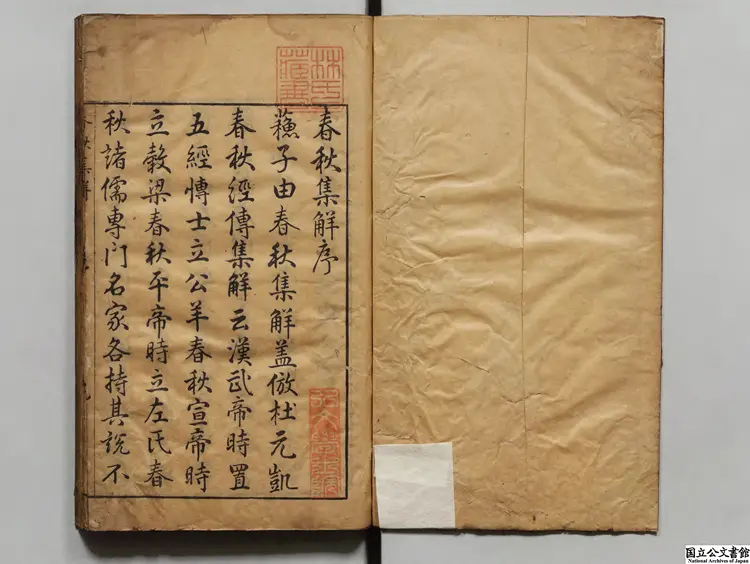 春秋集解序
蘓子由春秋集解盖倣杜元凱
春秋經傳集解云漢武帝時置
五經愽士立公羊春秋宣帝時
立穀梁春秋平帝時立左氏春
秋諸儒專門名家各持其說不
林氏藏書
国立公文書館
National Archives of Japan